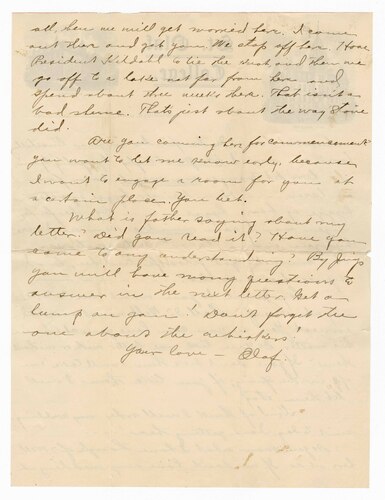 all, hen we will get worried here. I come
out there and get you. We stop off here. Have
President Kildahl to tie the knot, and then we
go off to a lake not far from here and
spend about three weeks here. That isn't a
bad scheme. Thats just about the way Stine
did.
Are you coming here for commencement
you want to let me know early, because
I want to engage a room for you at
a certain place. You bet.
What is father saying about my
letter? Did you read it? Have you
come to any understanding? By Jings
you will have many questions to
answer in the next letter. Get a
lump on you! Don't forget the
one about the whiskers!
Your love - Olaf.